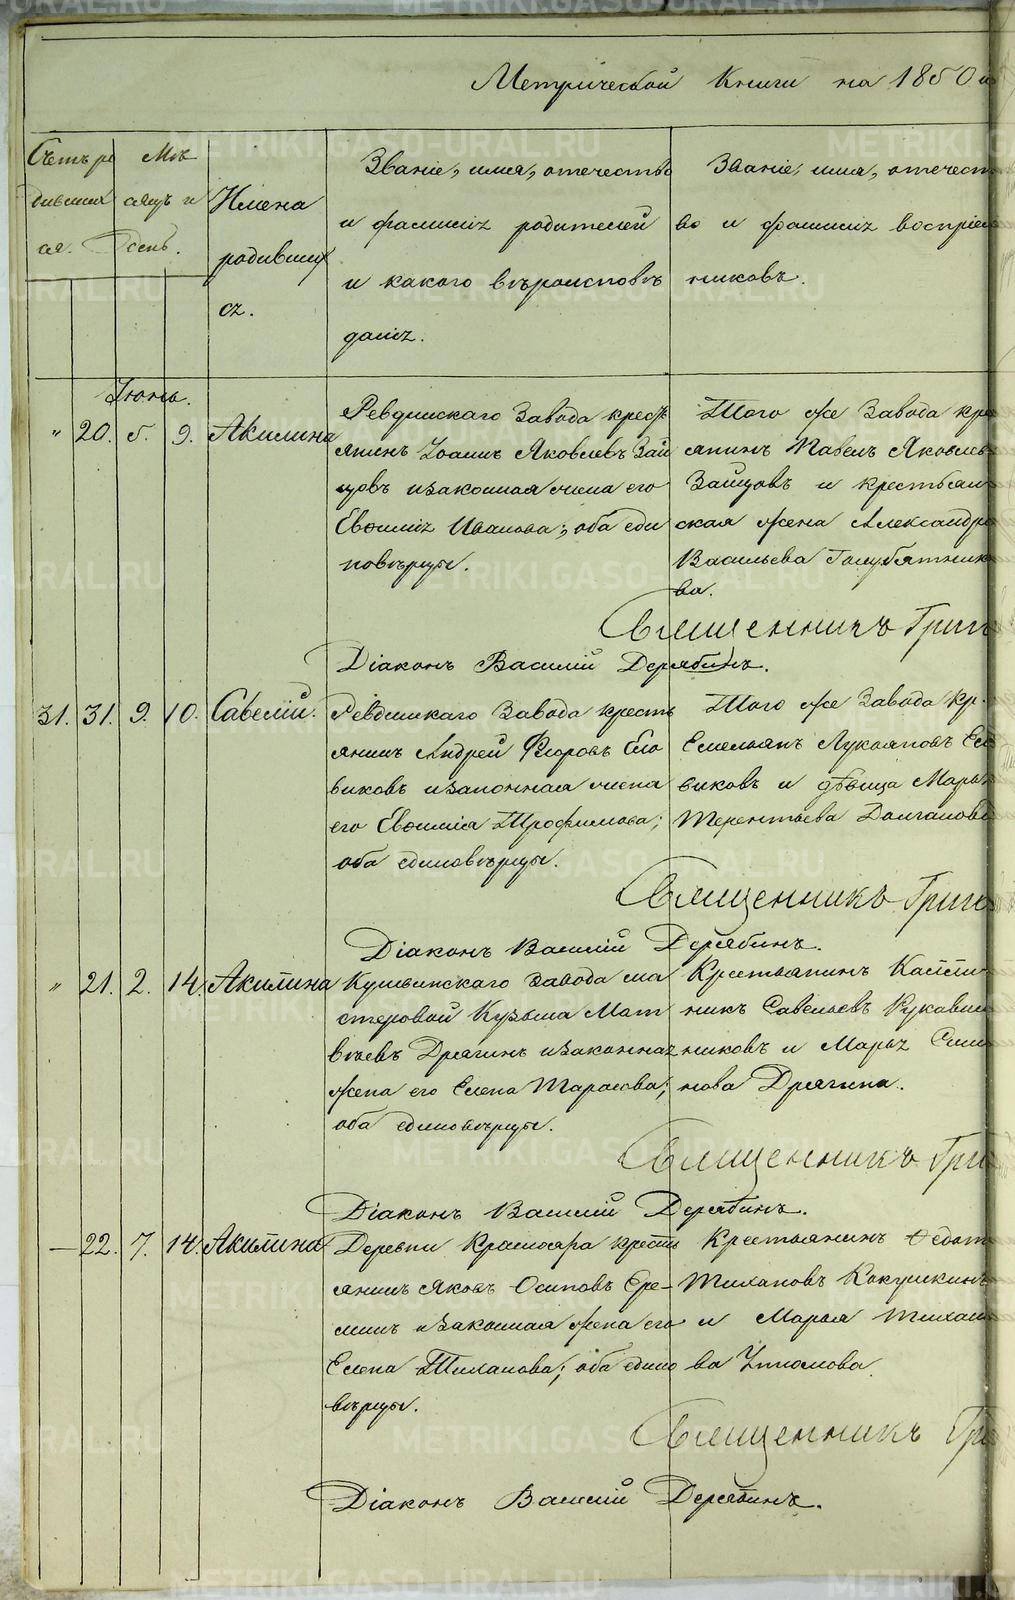 Метрической Книги на 1850
Счетъ ро
дивших
ся.
Мѣ
сяцъ и
день.
Имена
родивших
ся.
Званіе, имя, отечество
и фамилія родителей
и какого вѣроисповѣ
данія.
Званіе, имя, отечест
во и фамилія воспріем
никовъ.
Іюнь.
" 20. 5. 9. Акилина
Ревдинскаго Завода кресть
янинъ Іоаннъ Яковлевъ Зай
цовъ и законная жена его
Евѳимія Иванова; оба еди
новѣрцы.
Того же Завода кре
янинъ Павелъ Яковлев
Зайцовъ и крестьян
ская жена Александра
Васильева Голубятник
ва.
Священникъ Григ
Діаконъ Василій Дерябинъ.
31. 31. 9. 10. Савелій.
Ревдинскаго Завода кресть
янинъ Андрей
виковъ и законная жена
его Евѳимія Трофимова;
оба единовѣрцы.
Того же Завода кр.
Емельянъ Лукояновъ
виковъ и дѣвица Марья
Терентьева Долганова
Священникъ Григо
Діаконъ Василій Дерябинъ.
" 21. 2. 14. Акилина
Кушвинскаго завода ма
стеровой Кузьма Мат
вѣевъ Дрягинъ и законная
жена его Елена Тарасова;
оба единовѣрцы.
Крестьянинъ
никъ Савельевъ Рукавиш
никовъ и Марья Семе
нова Дрягина.
Священникъ Гри
Діаконъ Василій Дерябинъ.
— 22. 7. 14. Акилина
Деревни Краснояра кресть
янинъ Яковъ Осиповъ Ере-
минъ и законная жена его
Елена Тиханова; оба едино
вѣрцы.
Крестьянинъ Ѳедот
Тихановъ Кокушкинъ
и Марья Тихан
ва
Священникъ Гри
Діаконъ Василій Дерябинъ.
METRIKI.GASO-URAL.RU